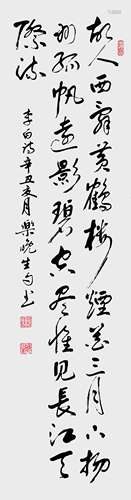 故人西辞黄鹤楼煙花三月下揚
州孤帆遠影碧空盡惟見長江天
際流
李白詩辛丑夏月樂曉生句書